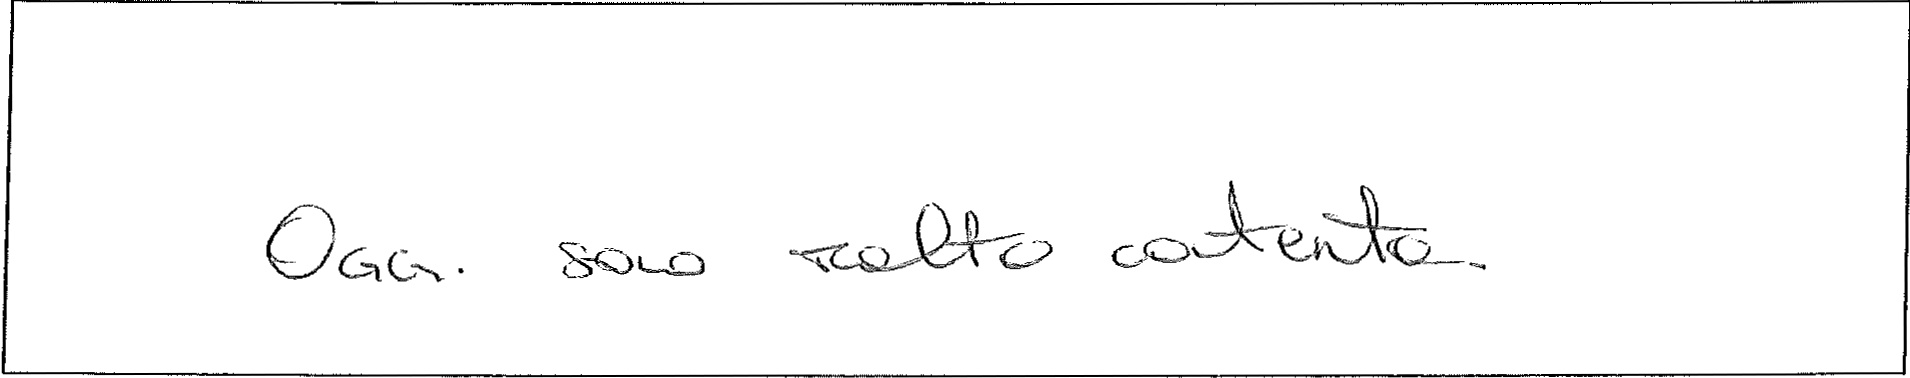 Oggi sono molto contenta.